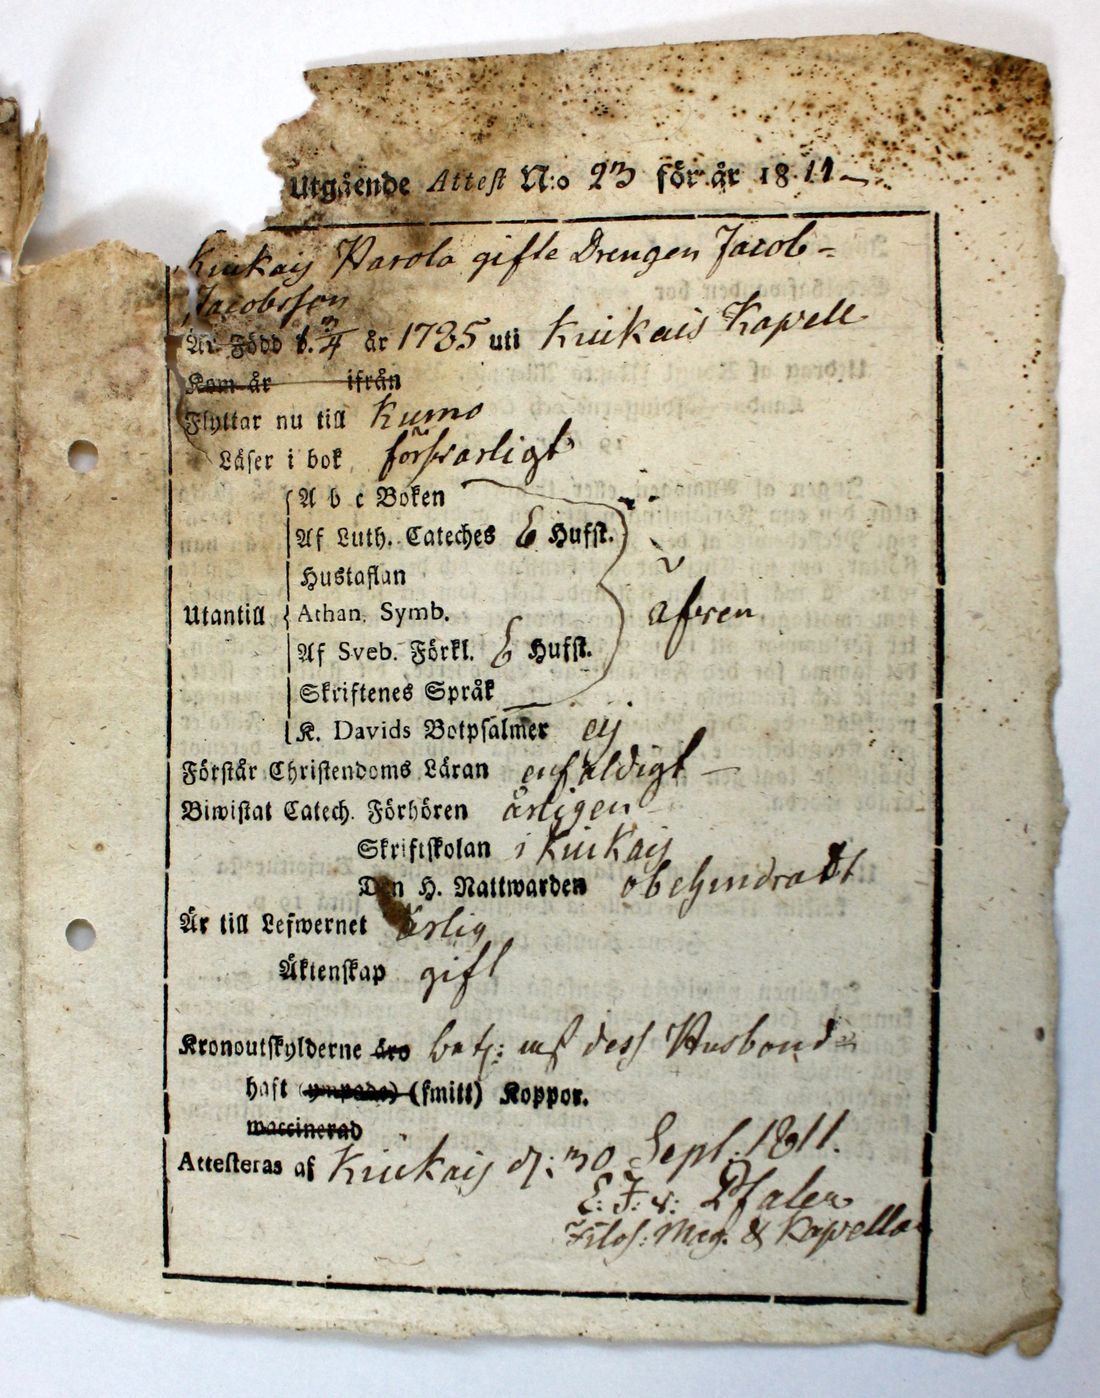 Utgående Attest N:o 23 för år 1811
Kiukais Harola gifte Drengen Jacob
Jacobsson
Är Född d. 3/4 år 1785 uti Kiukais Kapell
Kom år ifrån
Flyttar nu till Kumo
Läser i bok försvarligt
A b c Boken
Af Luth. Cateches & Hufst.
Hustaflan
Utantill Athan. Symb. äfven
Af Sveb. Förkl. & Hufst.
Skriftenes Språk
K. Davids Botpsalmer ej
Förstår Christendoms Läran enfaldigt
Biwistat Catech. Förhören årligen
Skriftskolan i Kiukais
Den H. Nattwarden obehindradt
Är till Lefwernet ärlig
Äktenskap gift
Kronoutskylderne äro bet: dess Husbond
haft (ympade) (smitt) Koppor.
waccinerad
Attesteras af Kiukais d: 30 Sept. 1811.
E: F: v: Pfaler
Filos: Mag. & Kapellan